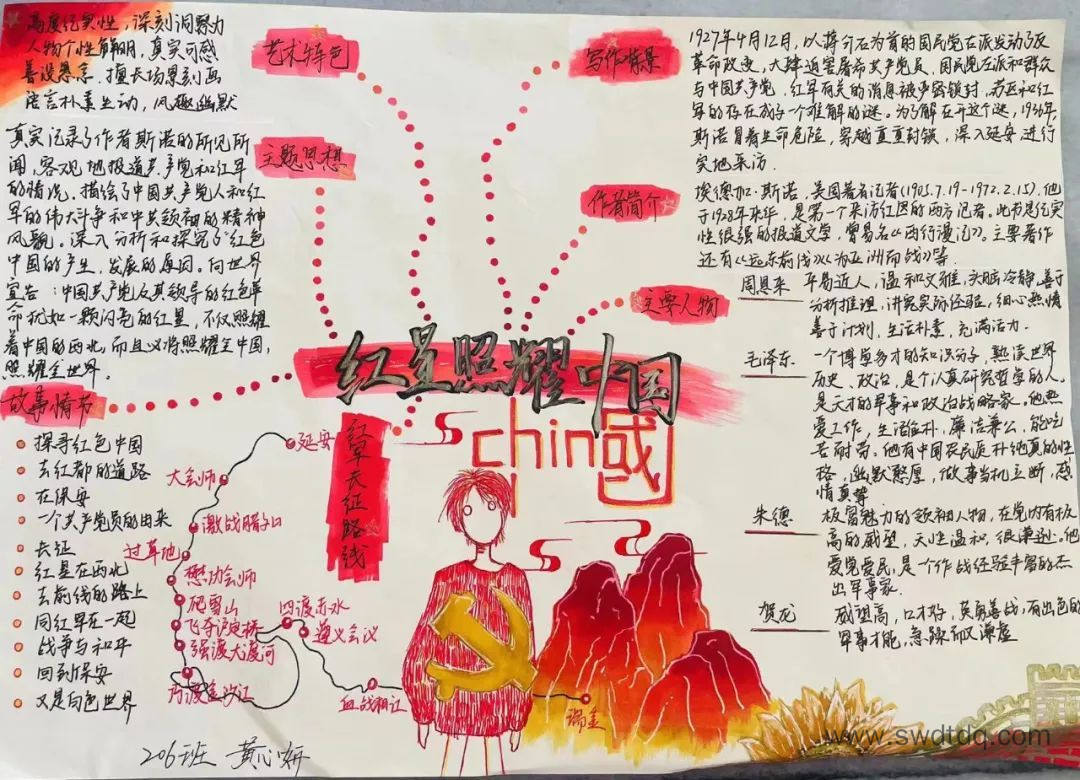 高度纪实性，深刻洞察力
人物个性鲜明，真实可感
善设悬念，擅长场景刻画
语言朴素生动，风趣幽默
艺术特色
真实记录了作者斯诺的所见所
闻，客观地报道共产党和红军
的情况。描绘了中国共产党人和红
军的伟大斗争和中共领袖的精神
风貌。深入分析和探究了"红色
中国的产生，发展的原因。向世界
宣告：中国共产党及其领导的红色革
命犹如一颗闪亮的红星，不仅照耀
着中国的西北，而且必将照耀全中国，
照耀全世界。
主题思想
故事情节
探寻红色中国
去红都的道路
在保安
一个共产党员的由来
长征
红星在西北
去前线的路上
同红军在一起
战争与和平
回到保安
又是白色世界
206班 黄心妍
写作背景
1927年4月12日，以蒋介石为首的国民党右派发动了反
革命政变，大肆迫害屠杀共产党员，国民党左派和群众
与中国共产党，红军有关的消息被严密锁封，苏区和红
军的存在成了一个难解的谜。为了解开这个谜，1936年，
斯诺冒着生命危险，穿越重重封锁，深入延安进行
实地采访.
作者简介
埃德加·斯诺，美国著名记者(1905.7.19-1972.2.15)。他
于1928年来华，是第一个来访红区的西方记者。此书是纪实
性很强的报道文学，曾易名《西行漫记》。主要著作
还有《远东前线》《为亚洲而战》等.
主要人物
周恩来
平易近人，温和文雅，头脑冷静，善于
分析推理，讲究实际经验，细心热情
善于计划，生活朴素，充满活力.
毛泽东
一个博学多才的知识分子，熟读世界
历史、政治，是个认真研究哲学的人。
是天才的军事和政治战略家。他热
爱工作，生活俭朴，廉洁奉公，能吃
苦耐劳。他有中国农民质朴纯真的性
格，幽默憨厚，做事当机立断，感
情真挚
朱德
极富魅力的领袖人物，在党内有极
高的威望，天性温和，很谦逊。他
爱党爱民，是一个作战经验丰富的杰
出军事家.
贺龙
威望高，口才好，英勇善战，有出色的
军事才能，急躁而又谦虚
红星照耀中国
china
国
红军长征路线
延安
大会师
激战腊子口
过草地
懋功会师
爬雪山
飞夺泸定桥
强渡大渡河
巧渡金沙江
四渡赤水
遵义会议
血战湘江
瑞金
www.swdtdq.com